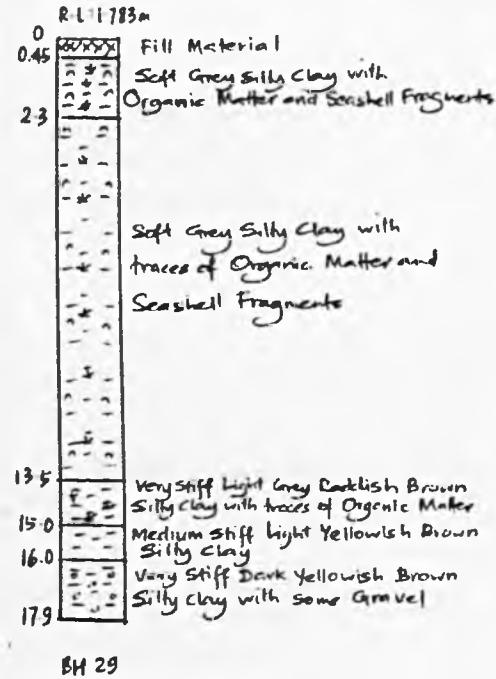 R.L 1.783m
0
Fill Material
0.45
Soft Grey Silty Clay with
Organic Matter and Seashell Fragments
2.3
Soft Grey Silty Clay with
traces of Organic Matter and
Seashell Fragments
13.5
Very Stiff Light Grey Reddish Brown
Silty Clay with traces of Organic Matter
15.0
Medium Stiff Light Yellowish Brown
Silty Clay
16.0
Very Stiff Dark Yellowish Brown
Silty Clay with some Gravel
17.9
BH 29